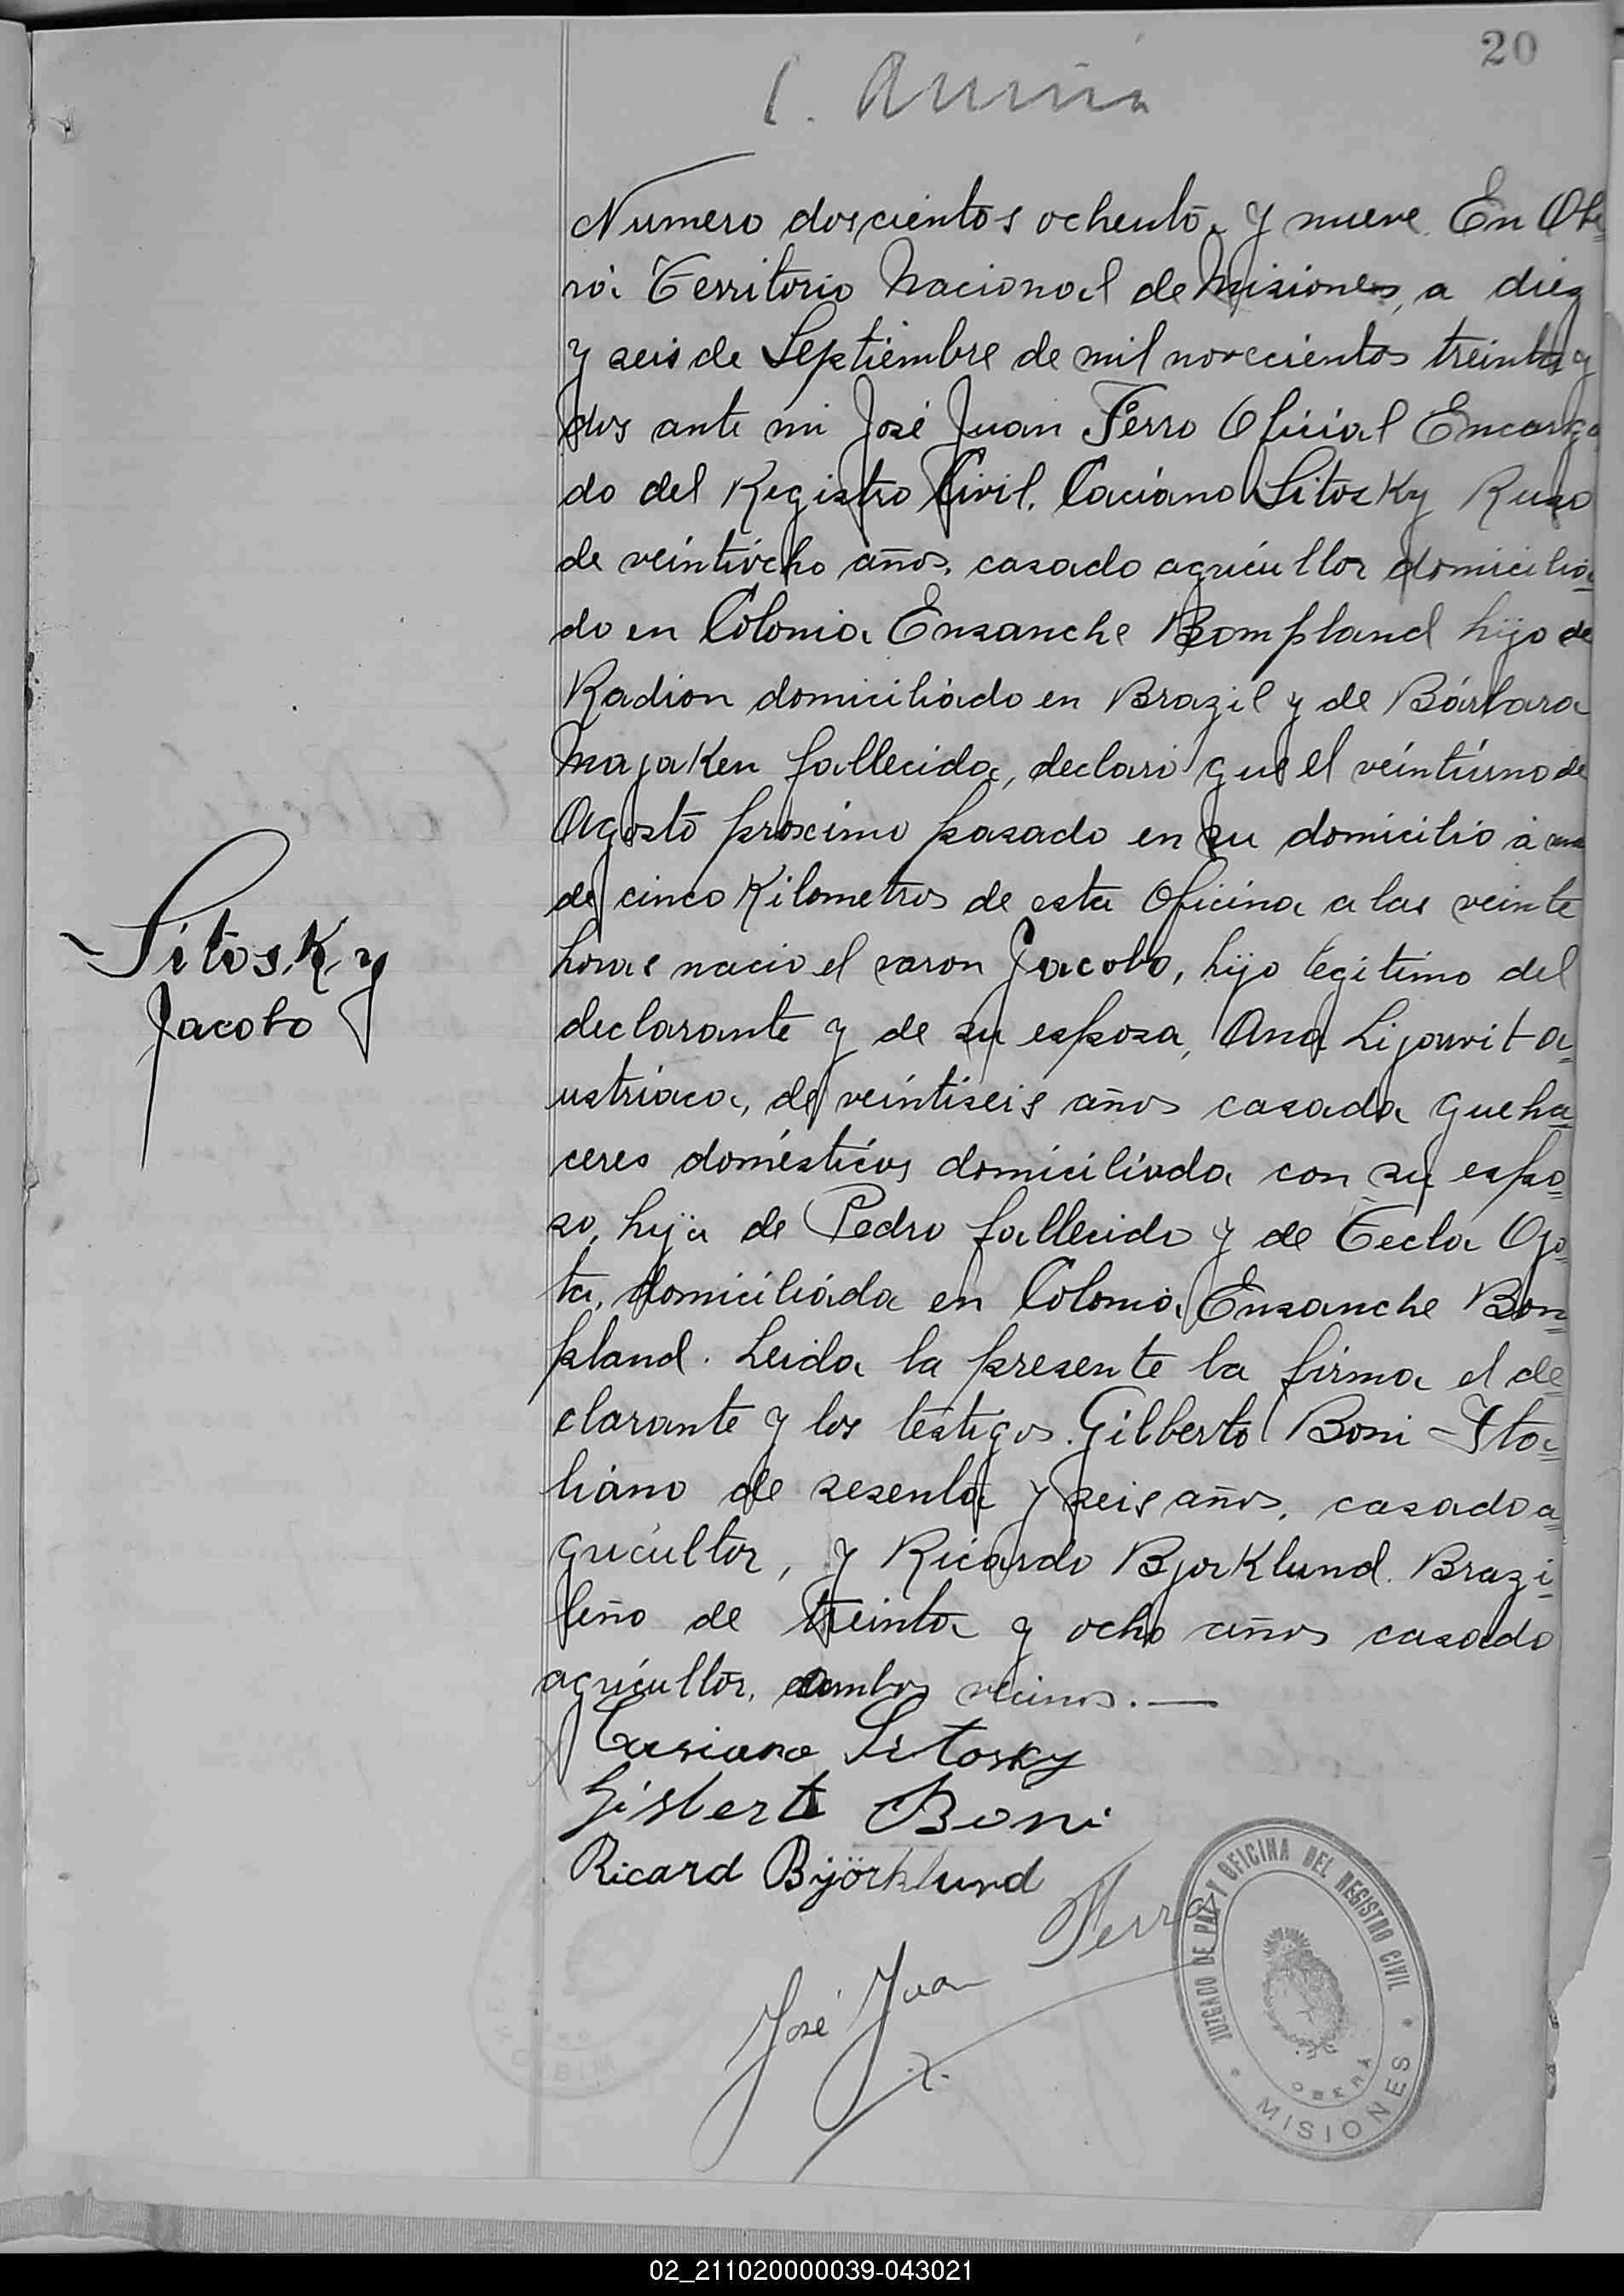 20
Numero doscientos ochenta y nueve. En Obe=
rá. Territorio Nacional de Misiones, a diez
y seis de Septiembre de mil novecientos treinta y
dos ante mi José Juan Ferro Oficial Encarga
do del Registro Civil. Caciano Sitosky Ruso
de veintiocho años, casado agricultor domicilia=
do en Colonia Ensanche Bompland hijo de
Radion domiciliado en Brazil y de Bárbara
Majaken fallecida, declaró que el veintiuno de
Agosto proximo pasado en su domicilio á
de cinco Kilometros de esta Oficina a las veinte
horas nacio el varon Jacobo, hijo legitimo del
declarante y de su esposa, Ana Lijowit a=
ustriaca, de veintiseis años casada queha=
ceres domésticos domiciliada con su espo=
so, hija de Pedro fallecido y de Tecla Ojo=
ta, domiciliada en Colonia Ensanche Bon=
pland. Leida la presente la firma el de=
clarante y los testigos. Gilberto Boni Ita=
liano de sesenta y seis años, casado a=
gricultor, y Ricardo Bjorklund. Brazi=
leño de treinta y ocho años casado
agricultor, ambos vecinos.—
Sitosky
Jacobo
Casiano Sitosky
Gisberto Boni
Ricard Bijörklund
José Juan Ferro
JUZGADO DE PAZ Y OFICINA DEL REGISTRO CIVIL
OBERÁ
MISIONES
02_211020000039-043021